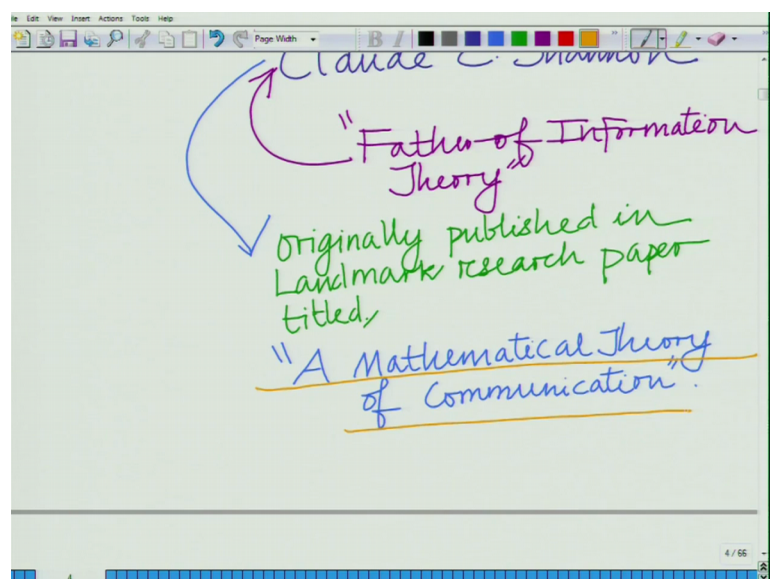 Edit View Insert Actions Tools Help
Page Width
B I
Claude E. Shannon
"Father of Information
Theory"
originally published in
Landmark research paper
titled,
"A Mathematical Theory
of Communication".
4 / 66
4